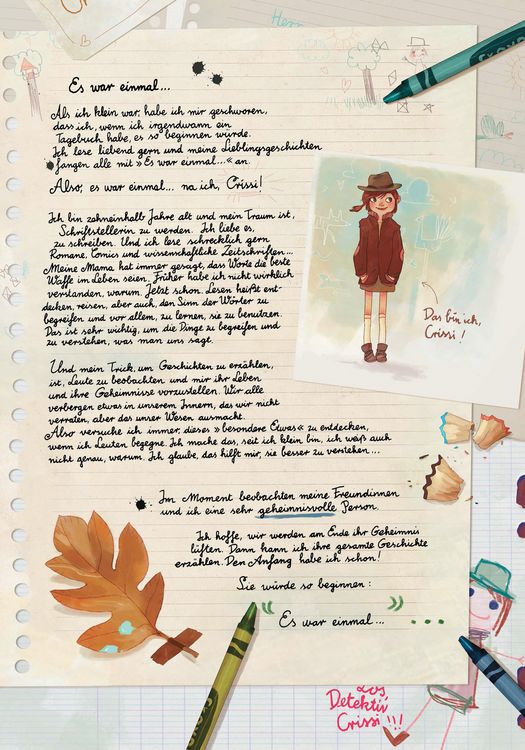 Herr
Es war einmal...
Als ich klein war, habe ich mir geschworen,
dass ich, wenn ich irgendwann ein
Tagebuch habe, es so beginnen würde.
Ich lese liebend gern und meine Lieblingsgeschichten
fangen alle mit » Es war einmal...« an.
Also, es war einmal... na ich, Crissi!
Ich bin zehneinhalb Jahre alt und mein Traum ist,
Schriftstellerin zu werden. Ich liebe es,
zu schreiben. Und ich lese schrecklich gern
Romane, Comics und wissenschaftliche Zeitschriften...
Meine Mama hat immer gesagt, dass Worte die beste
Waffe im Leben seien. Früher habe ich nicht wirklich
verstanden, warum. Jetzt schon. Lesen heißt ent-
decken, reisen, aber auch, den Sinn der Wörter zu
begreifen und vor allem, zu lernen, sie zu benutzen.
Das ist sehr wichtig, um die Dinge zu begreifen und
zu verstehen, was man uns sagt.
Das bin ich,
Crissi!
Und mein Trick, um Geschichten zu erzählen,
ist, Leute zu beobachten und mir ihr Leben
und ihre Geheimnisse vorzustellen. Wir alle
verbergen etwas in unserem Innern, das wir nicht
verraten, aber das unser Wesen ausmacht.
Also versuche ich immer, dieses » besondere Etwas« zu entdecken,
wenn ich Leuten begegne. Ich mache das, seit ich klein bin, ich weiß auch
nicht genau, warum. Ich glaube, das hilft mir, sie besser zu verstehen...
Im Moment beobachten meine Freundinnen
und ich eine sehr geheimnisvolle Person.
Ich hoffe, wir werden am Ende ihr Geheimnis
lüften. Dann kann ich ihre gesamte Geschichte
erzählen. Den Anfang habe ich schon!
Sie würde so beginnen:
« Es war einmal... » ...
Detektiv
Crissi!!!